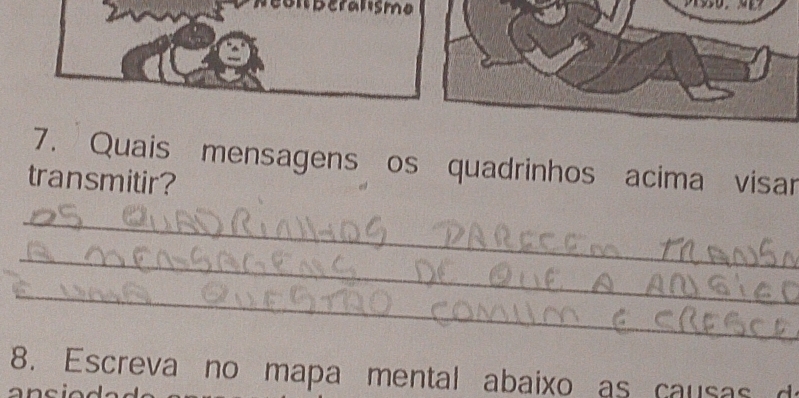 Neoliberalismo
DISSO, NÉ?
7. Quais mensagens os quadrinhos acima visam
transmitir?
OS QUADRINHOS PARECEM TRANSM
A MENSAGENS DE QUE A ANSIED
É UMA QUESTÃO COMUM E CRESCE
8. Escreva no mapa mental abaixo as causas d